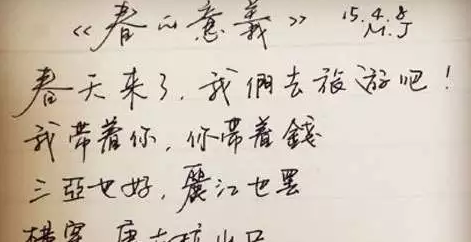 《春的意義》 15.4.8
M.J
春天来了,我們去旅游吧!
我帶着你,你帶着錢
三亞也好,麗江也罢